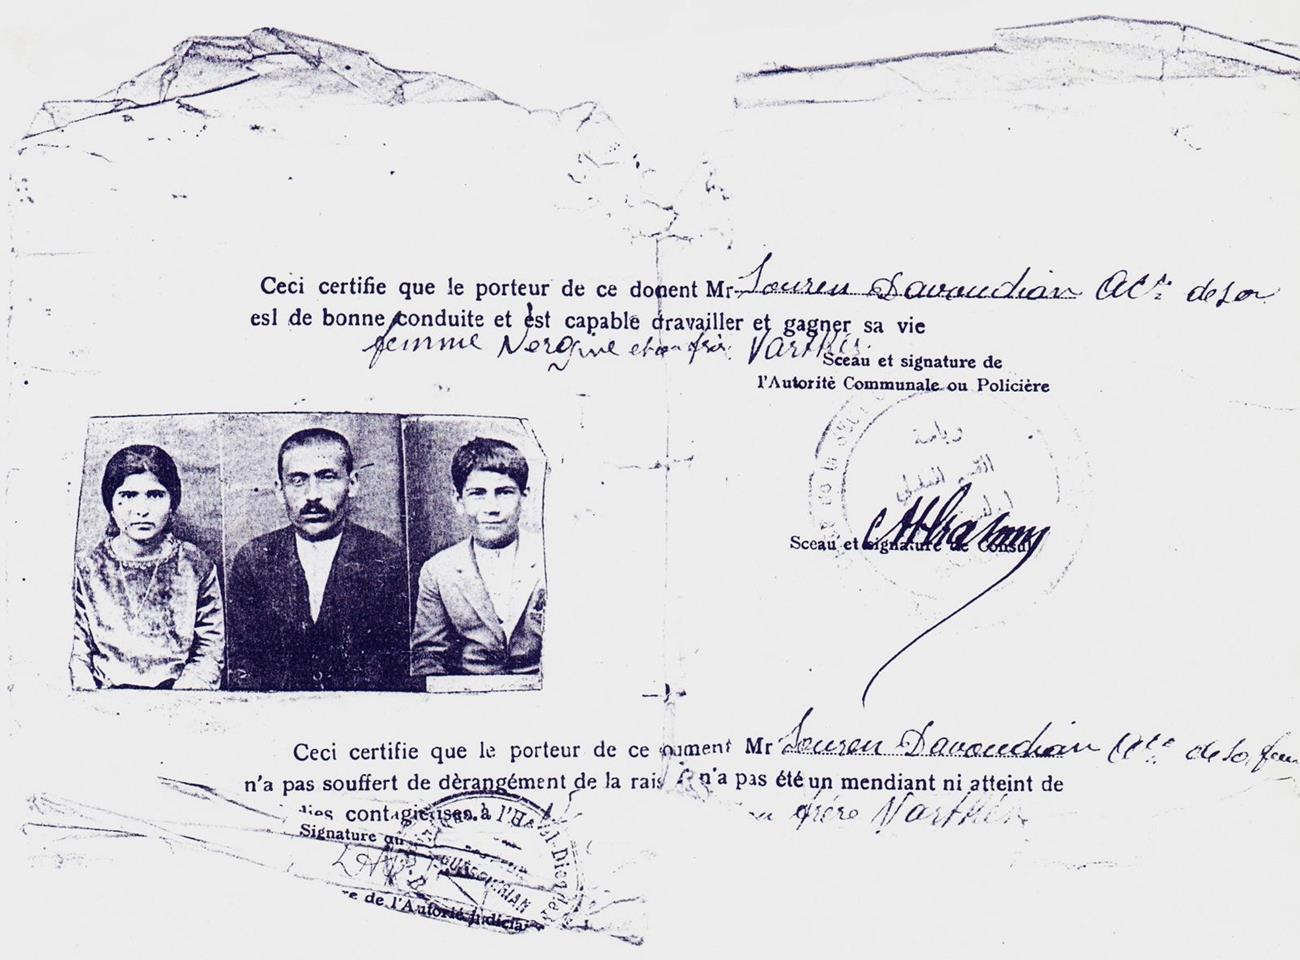 Ceci certifie que le porteur de ce doment Mr Souren Davoudian Acc: de sa
esl de bonne conduite et est capable dravailler et gagner sa vie
femme Nergine et son frèr. Varthis.
Sceau et signature de
l'Autorité Communale ou Policière
رياسة
Sceau et signature de Consul
Ceci certifie que le porteur de ce oument Mr Souren Davoudian Acc. de sa fem
n'a pas souffert de dèrangément de la rais n'a pas été un mendiant ni atteint de
dies contagieuses à l'H
frère Varthis
Signature du
e de l'Autorié Judiciai